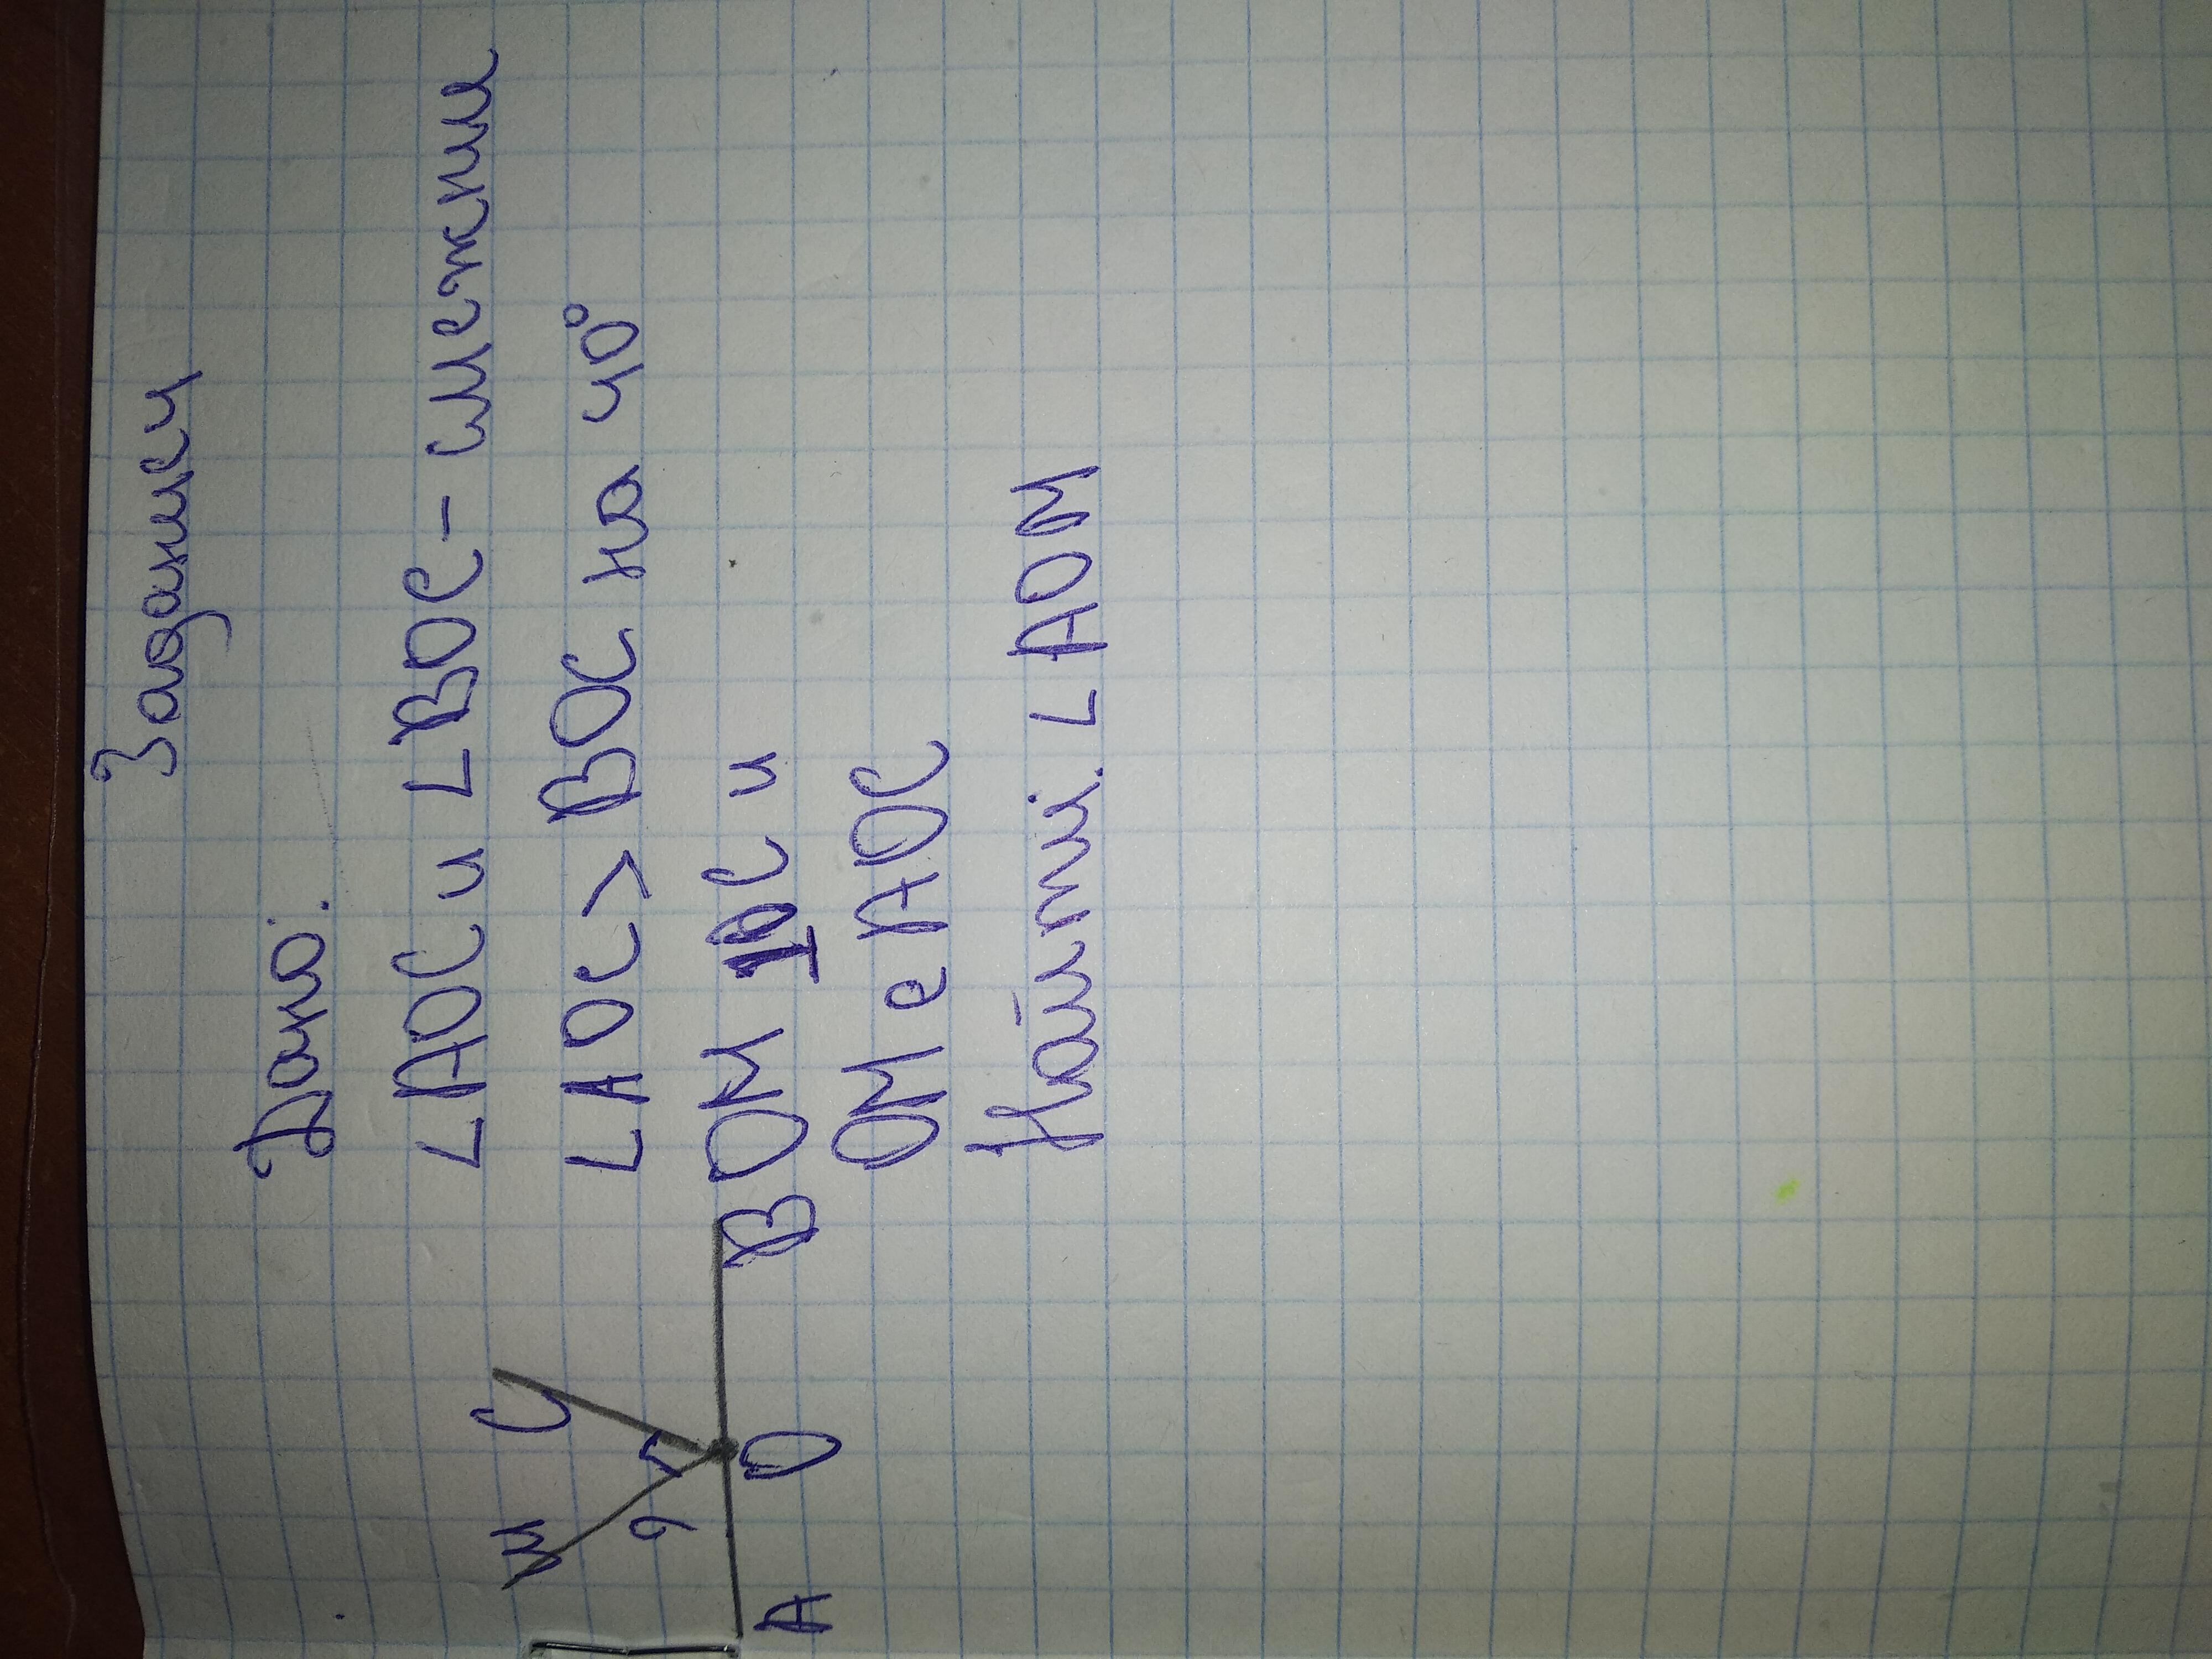 Задание 4
Дано:
∠AOC и ∠BOC - смежные
∠AOC > BOC на 40°
OM ⊥ OC и
OM ∈ AOC
Найти: ∠AOM
M
C
?
A
O
B